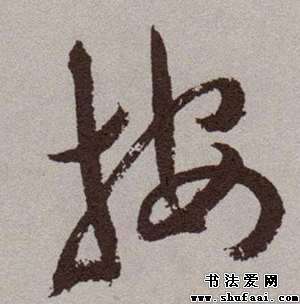 按
书法爱网
www.shufaai.com